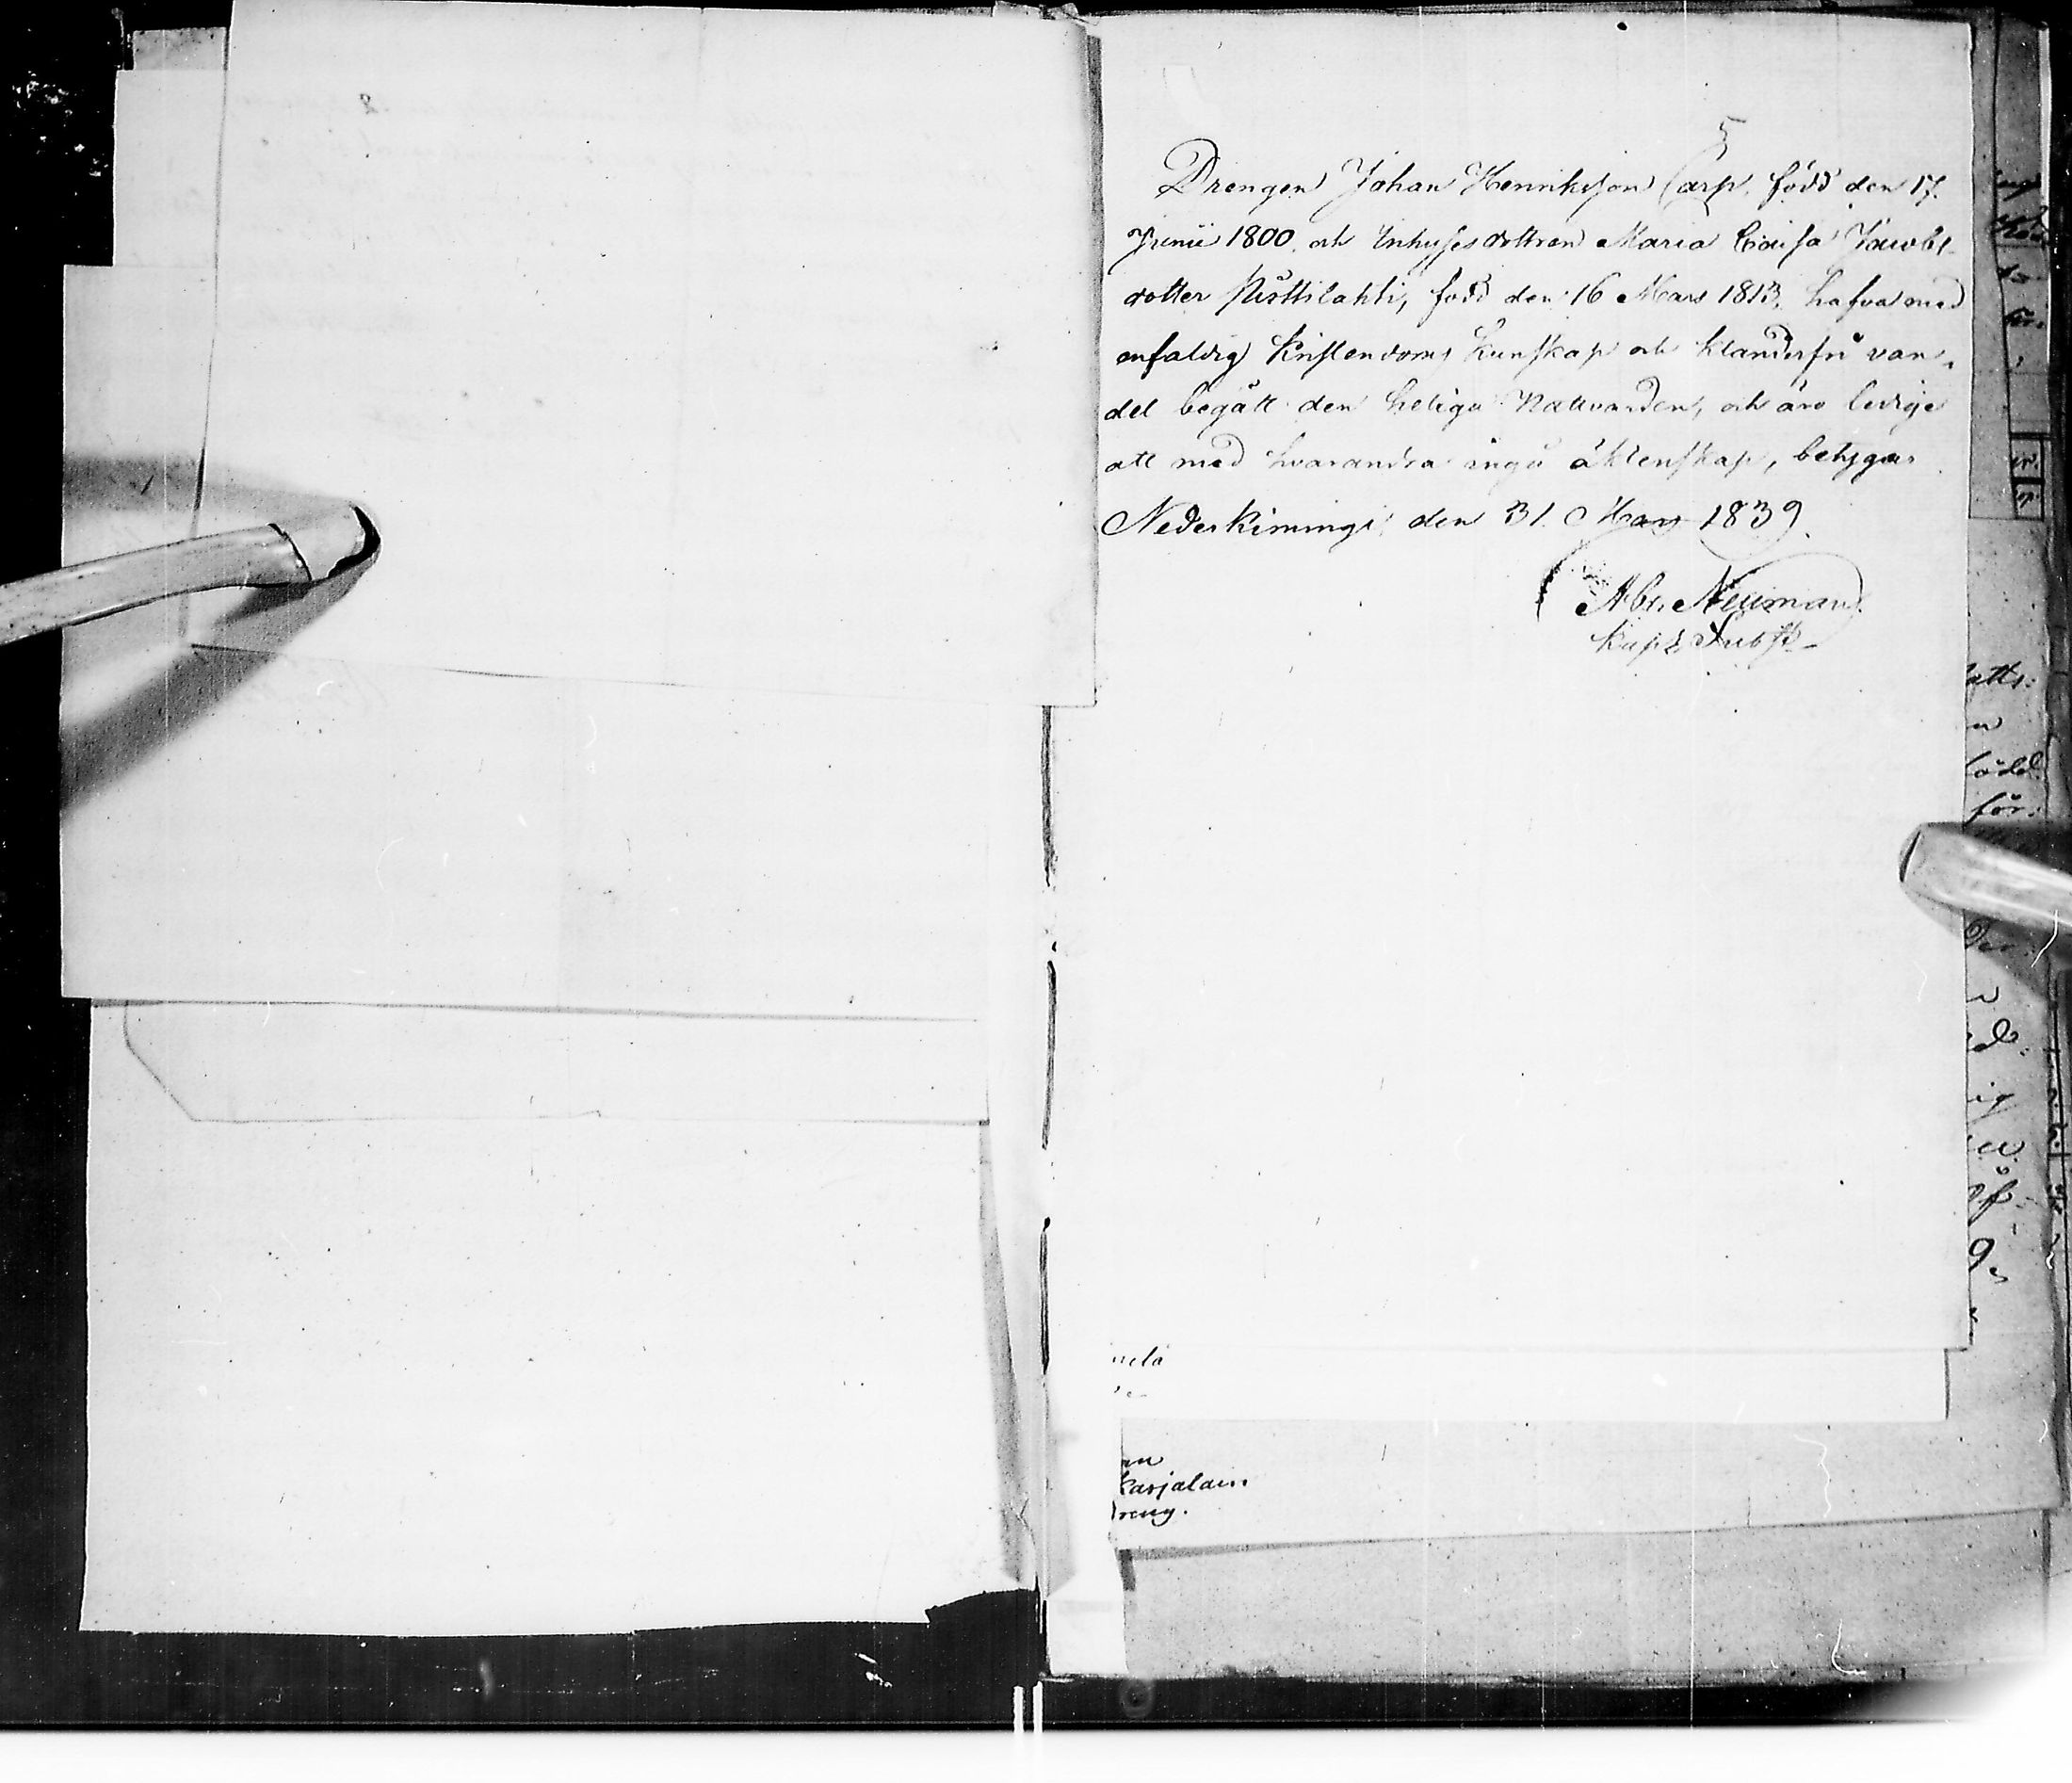 5
Drengen Johan Henriksson Carp, född den 17.
Junii 1800, och Inhyses dottren Maria Caisa Jacobs-
dotter Pisttilahti, född den 16 Mars 1813, hafva med
enfaldig Kristendoms Kunskap och klanderfri van-
del begått den heliga Nattvarden, och äro ledige
att med hvarandra ingå äktenskap, betygar
Nederkimingi den 31. Mars 1839.
Abr. Neuman
Kapl. Subst.
atts:
född
för:
nela
karjalain
dreng.